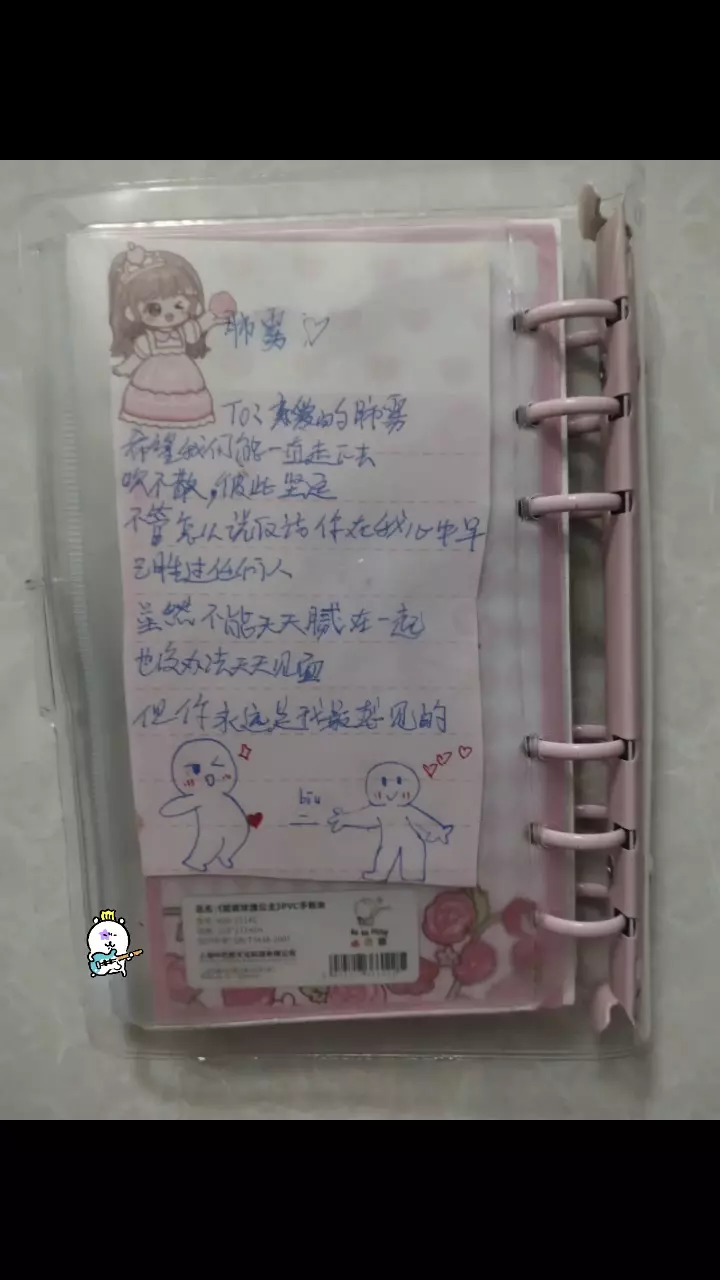 肺雾
TO:亲爱的肺雾
希望我们能一直走下去
吹不散,彼此坚定
不管怎么说反正你在我心中早
已胜过任何人
虽然不能天天腻在一起
也没办法天天见面
但你永远是我最想见的
biu
PVC手帐本